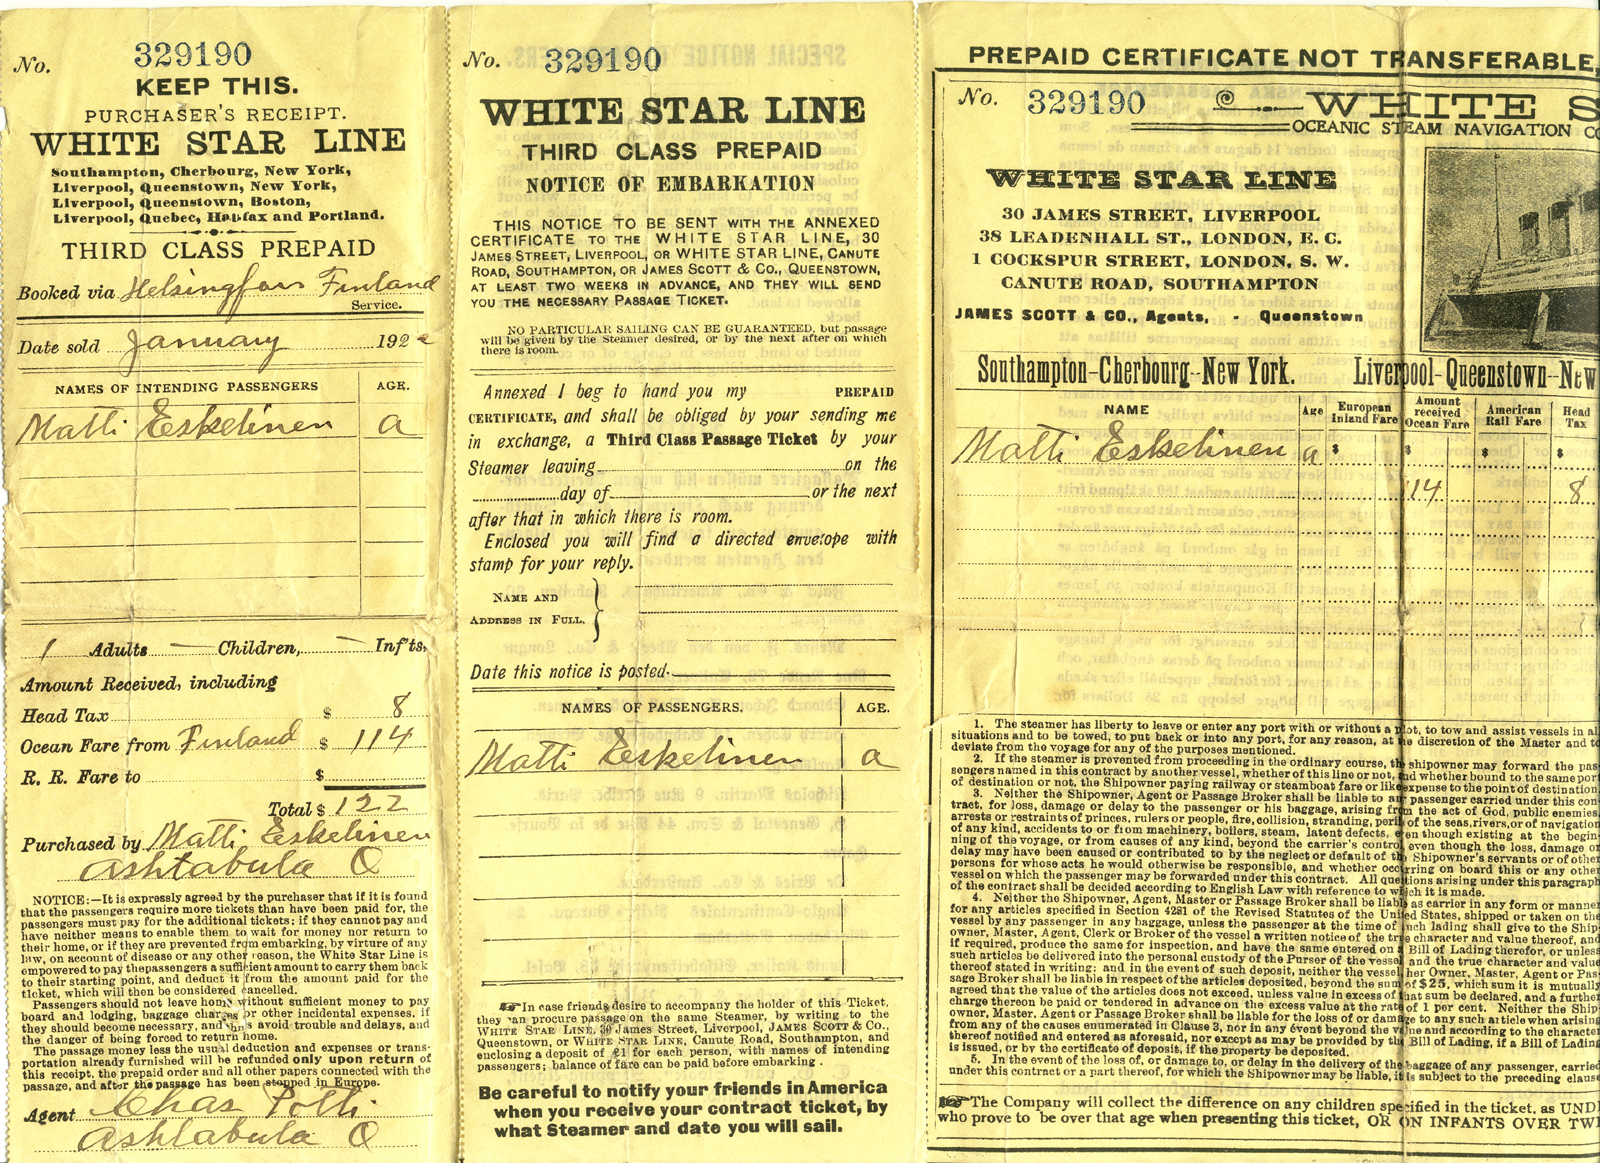 No. 329190
KEEP THIS.
PURCHASER'S RECEIPT.
WHITE STAR LINE
Southampton, Cherbourg, New York,
Liverpool, Queenstown, New York,
Liverpool, Queenstown, Boston,
Liverpool, Quebec, Halifax and Portland.
THIRD CLASS PREPAID
Booked via Helsingfors Finland
Service.
Date sold January 192
NAMES OF INTENDING PASSENGERS AGE.
Matti Eskelinen a
1 Adults — Children, — Inf'ts,
Amount Received, including
Head Tax $ 8
Ocean Fare from Finland $ 114
R. R. Fare to $
Total $ 122
Purchased by Matti Eskelinen
Ashtabula O
NOTICE:—It is expressly agreed by the purchaser that if it is found
that the passengers require more tickets than have been paid for, the
passengers must pay for the additional tickets; if they cannot pay and
have neither means to enable them to wait for money nor return to
their home, or if they are prevented from embarking, by virtue of any
law, on account of disease or any other reason, the White Star Line is
empowered to pay thepassengers a sufficient amount to carry them back
to their starting point, and deduct it from the amount paid for the
ticket, which will then be considered cancelled.
Passengers should not leave home without sufficient money to pay
board and lodging, baggage charges or other incidental expenses, if
they should become necessary, and thus avoid trouble and delays, and
the danger of being forced to return home.
The passage money less the usual deduction and expenses or trans-
portation already furnished will be refunded only upon return of
this receipt, the prepaid order and all other papers connected with the
passage, and after the passage has been stopped in Europe.
Agent Chas Potti
Ashtabula O
No. 329190
WHITE STAR LINE
THIRD CLASS PREPAID
NOTICE OF EMBARKATION
THIS NOTICE TO BE SENT WITH THE ANNEXED
CERTIFICATE TO THE WHITE STAR LINE, 30
JAMES STREET, LIVERPOOL, OR WHITE STAR LINE, CANUTE
ROAD, SOUTHAMPTON, OR JAMES SCOTT & CO., QUEENSTOWN,
AT LEAST TWO WEEKS IN ADVANCE, AND THEY WILL SEND
YOU THE NECESSARY PASSAGE TICKET.
NO PARTICULAR SAILING CAN BE GUARANTEED, but passage
will be given by the Steamer desired, or by the next after on which
there is room.
Annexed I beg to hand you my PREPAID
CERTIFICATE, and shall be obliged by your sending me
in exchange, a Third Class Passage Ticket by your
Steamer leaving on the
day of or the next
after that in which there is room.
Enclosed you will find a directed envelope with
stamp for your reply.
NAME AND
ADDRESS IN FULL.
Date this notice is posted.
NAMES OF PASSENGERS. AGE.
Matti Eskelinen a
In case friends desire to accompany the holder of this Ticket,
they can procure passage on the same Steamer, by writing to the
WHITE STAR LINE, 30 James Street, Liverpool, JAMES SCOTT & CO.,
Queenstown, or WHITE STAR LINE, Canute Road, Southampton, and
enclosing a deposit of £1 for each person, with names of intending
passengers; balance of fare can be paid before embarking.
Be careful to notify your friends in America
when you receive your contract ticket, by
what Steamer and date you will sail.
PREPAID CERTIFICATE NOT TRANSFERABLE,
No. 329190 WHITE S
OCEANIC STEAM NAVIGATION CO
WHITE STAR LINE
30 JAMES STREET, LIVERPOOL
38 LEADENHALL ST., LONDON, E. C.
1 COCKSPUR STREET, LONDON, S. W.
CANUTE ROAD, SOUTHAMPTON
JAMES SCOTT & CO., Agents, - Queenstown
Southampton–Cherbourg–New York. Liverpool–Queenstown–New
NAME Age European Inland Fare Amount received Ocean Fare American Rail Fare Head Tax
Matti Eskelinen a $ $ $ $
114 8
1. The steamer has liberty to leave or enter any port with or without a pilot, to tow and assist vessels in all
situations and to be towed, to put back or into any port, for any reason, at the discretion of the Master and to
deviate from the voyage for any of the purposes mentioned.
2. If the steamer is prevented from proceeding in the ordinary course, the shipowner may forward the pas-
sengers named in this contract by another vessel, whether of this line or not, and whether bound to the same port
of destination or not, the Shipowner paying railway or steamboat fare or like expense to the point of destination.
3. Neither the Shipowner, Agent or Passage Broker shall be liable to any passenger carried under this con-
tract, for loss, damage or delay to the passenger or his baggage, arising from the act of God, public enemies,
arrests or restraints of princes, rulers or people, fire, collision, stranding, perils of the seas, rivers, or of navigation
of any kind, accidents to or from machinery, boilers, steam, latent defects, even though existing at the begin-
ning of the voyage, or from causes of any kind, beyond the carrier's control, even though the loss, damage or
delay may have been caused or contributed to by the neglect or default of the Shipowner's servants or of other
persons for whose acts he would otherwise be responsible, and whether occurring on board this or any other
vessel on which the passenger may be forwarded under this contract. All questions arising under this paragraph
of the contract shall be decided according to English Law with reference to which it is made.
4. Neither the Shipowner, Agent, Master or Passage Broker shall be liable as carrier in any form or manner
for any articles specified in Section 4281 of the Revised Statutes of the United States, shipped or taken on the
vessel by any passenger in any baggage, unless the passenger at the time of such lading shall give to the Ship-
owner, Master, Agent, Clerk or Broker of the vessel a written notice of the true character and value thereof, and
if required, produce the same for inspection, and have the same entered on a Bill of Lading therefor, or unless
such articles be delivered into the personal custody of the Purser of the vessel and the true character and value
thereof stated in writing; and in the event of such deposit, neither the vessel, her Owner, Master, Agent or Pas-
sage Broker shall be liable in respect of the articles deposited, beyond the sum of $25, which sum it is mutually
agreed that the value of the articles does not exceed, unless value in excess of that sum be declared, and a further
charge thereon be paid or tendered in advance on the excess value at the rate of 1 per cent. Neither the Ship-
owner, Master, Agent or Passage Broker shall be liable for the loss of or damage to any such article when arising
from any of the causes enumerated in Clause 3, nor in any event beyond the value and according to the character
thereof notified and entered as aforesaid, nor except as may be provided by the Bill of Lading, if a Bill of Lading
is issued, or by the certificate of deposit, if the property be deposited.
5. In the event of the loss of, or damage to, or delay in the delivery of the baggage of any passenger, carried
under this contract or a part thereof, for which the Shipowner may be liable, it is subject to the preceding clause
The Company will collect the difference on any children specified in the ticket, as UND
who prove to be over that age when presenting this ticket, OR ON INFANTS OVER TW